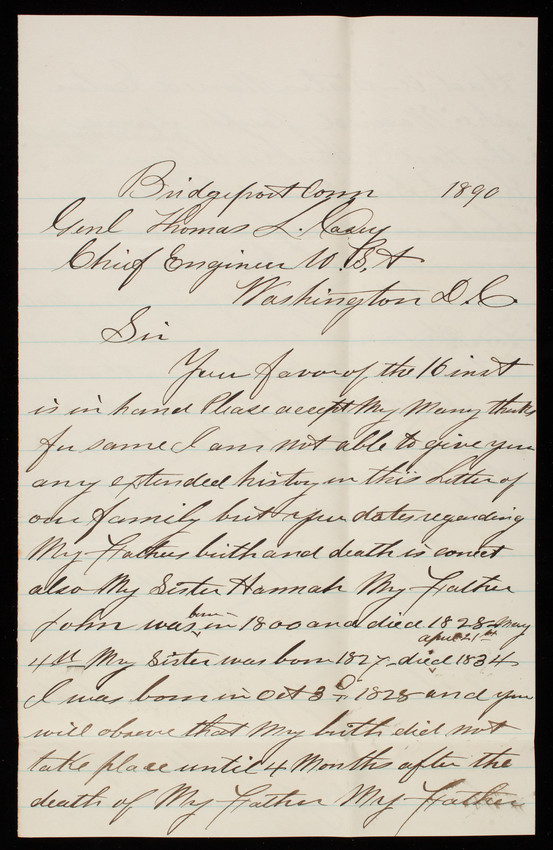 Bridgeport Conn 1890
Genl Thomas L. Casey
Chief Engineer U.S.A
Washington D.C.
Sir
Your favor of the 16 inst
is in hand Please accept My Many thanks
for same I am not able to give you
any extended history in this Letter of
our family but your dates regarding
My Fathers birth and death is correct
also My Sister Hannah My Father
John was born in 1800 and died 1828 May
4th My Sister was born 1827 died april 21st 1834
I was born in Oct 3d 1828 and you
will observe that My birth did not
take place until 4 Months after the
death of My Father My Father